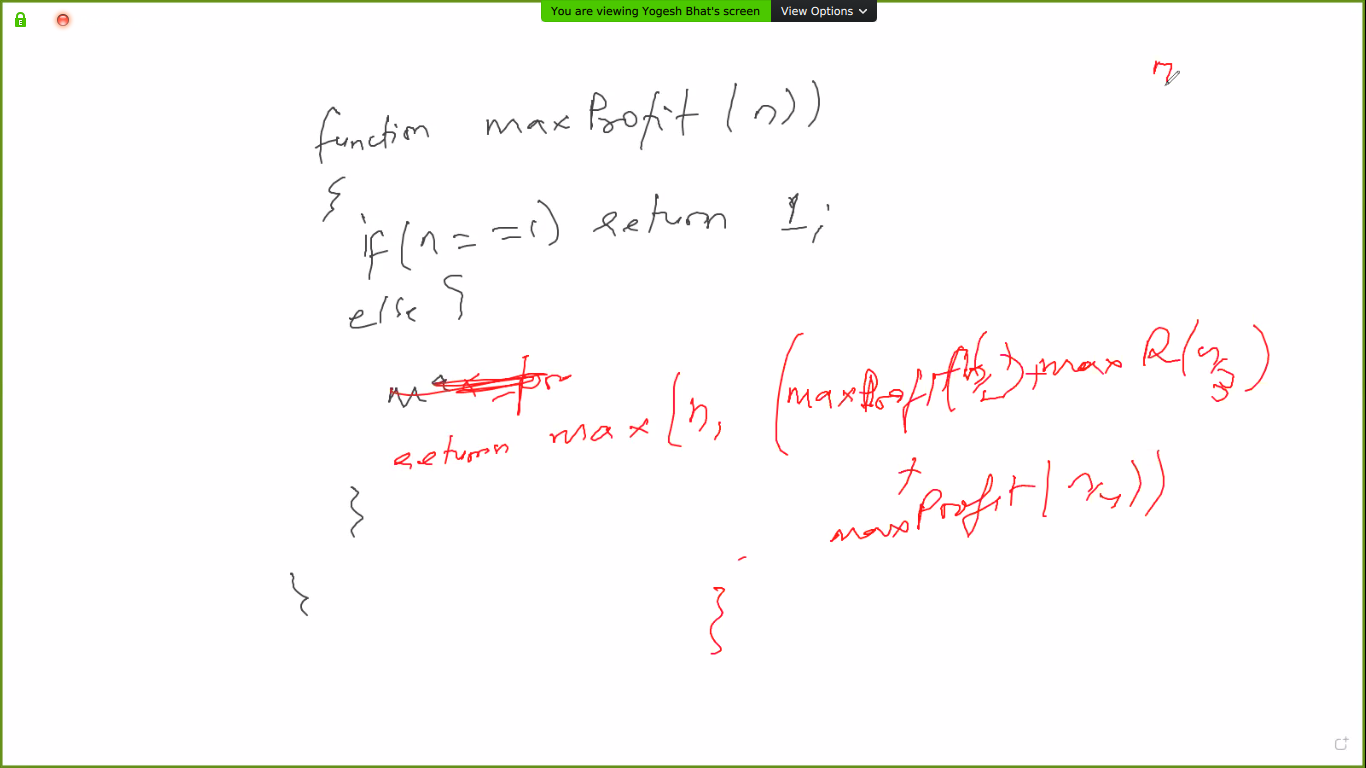 You are viewing Yogesh Bhat's screen View Options
n
function maxProfit (n))
{
if(n==1) return 1;
else {
return max(n, (maxProfit(n/2)+max R(n/3)
+
maxProfit(n/4))
}
}
}